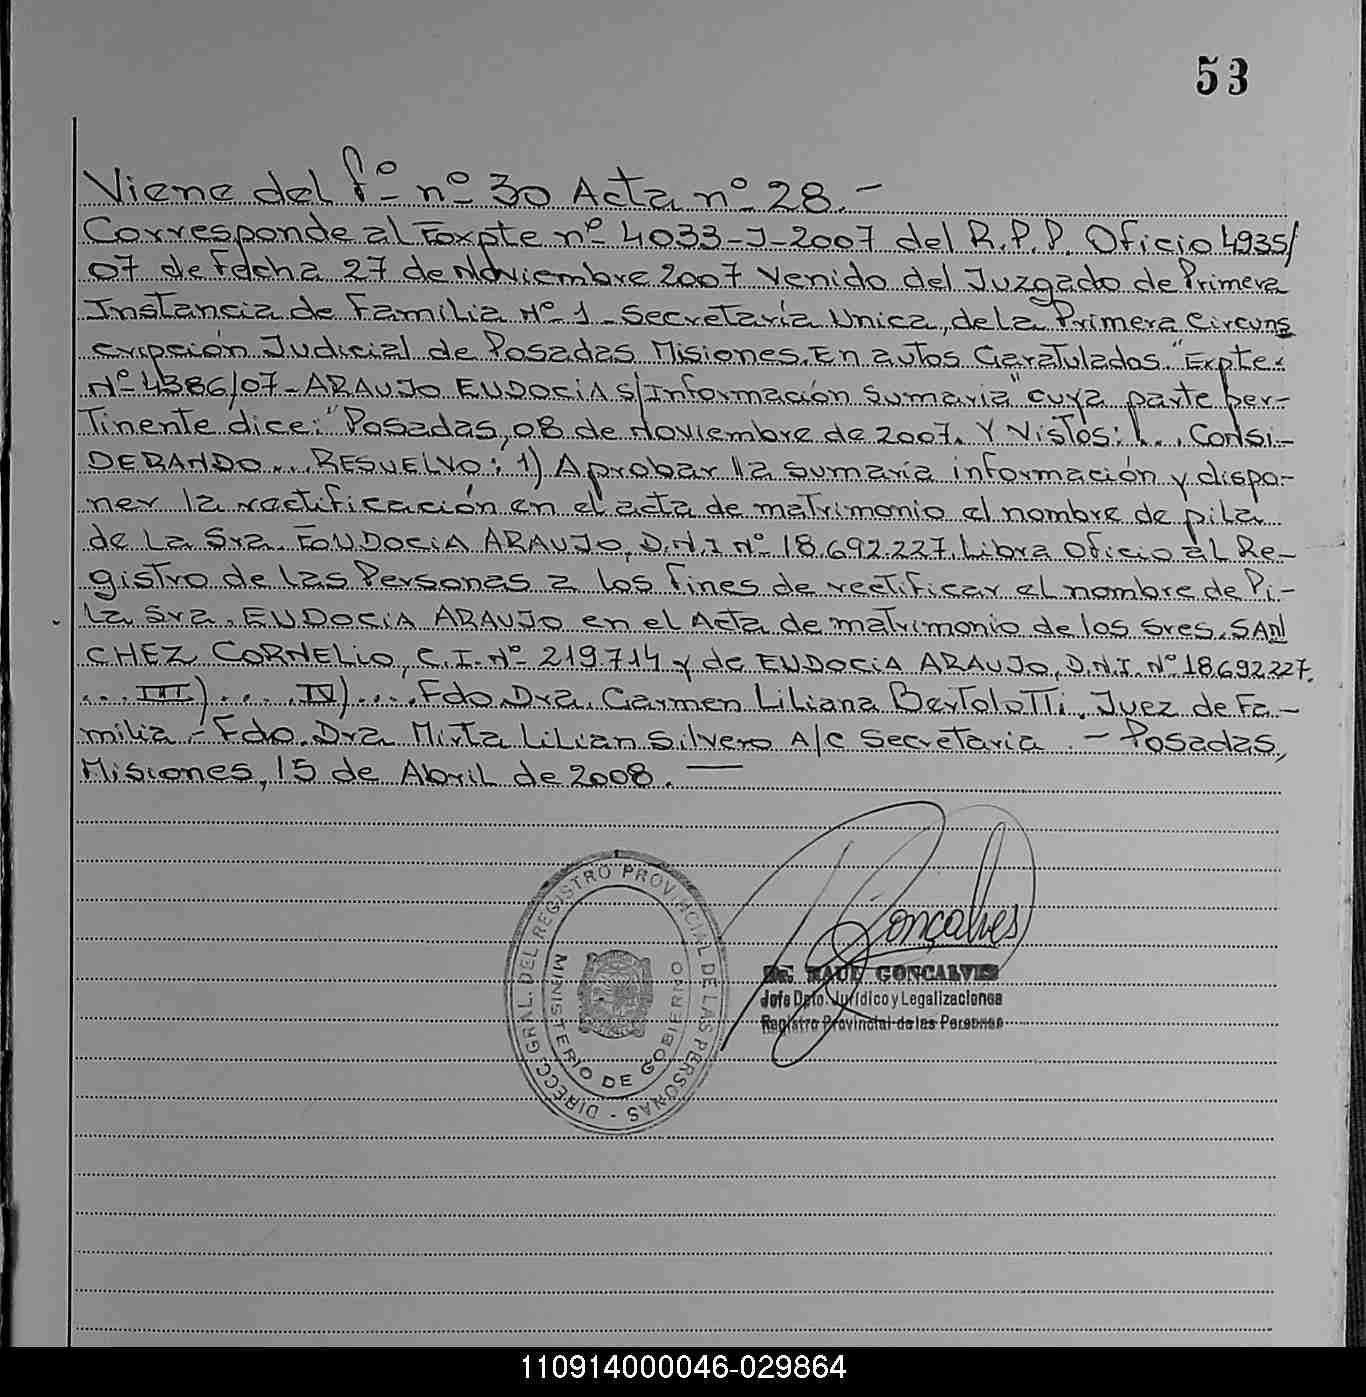 53
Viene del fº nº 30 Acta nº 28.-
Corresponde al Expte nº 4033-J-2007 del R.P.P. Oficio 4935/
07 de Fecha 27 de Noviembre 2007 Venido del Juzgado de Primera
Instancia de Familia Nº 1 - Secretaria Unica, de la Primera Circuns
cripción Judicial de Posadas Misiones. En autos Caratulados "Expte.
Nº 4386/07-ARAUJO EUDOCIA S/Información Sumaria" cuya parte per-
Tinente dice: "Posadas, 08 de Noviembre de 2007. Y Vistos: ... CONSI-
DERANDO... RESUELVO: 1) Aprobar la sumaria información y dispo-
ner la rectificación en el acta de matrimonio el nombre de pila
de La Sra. EUDOCIA ARAUJO, D.N.I Nº 18.692.227. Libra oficio al Re-
gistro de las Personas a los fines de rectificar el nombre de Pi-
la Sra. EUDOCIA ARAUJO en el Acta de matrimonio de los Sres. SAN
CHEZ CORNELIO, C.I. Nº 219.714 y de EUDOCIA ARAUJO, D.N.I. Nº 18.692.227.
... III) .... IV) .... Fdo. Dra. Carmen Liliana Bertolotti. Juez de Fa-
milia - Fdo. Dra Mirta Lilian Silvero A/C Secretaria. - Posadas,
Misiones, 15 de Abril de 2008. —
DIRECC. GRAL. DEL REGISTRO PROVINCIAL DE LAS PERSONAS -
MINISTERIO DE GOBIERNO
Gonçalves
DR. RAUL GONCALVES
Jefe Dpto. Jurídico y Legalizaciones
Registro Provincial de las Personas
110914000046-029864